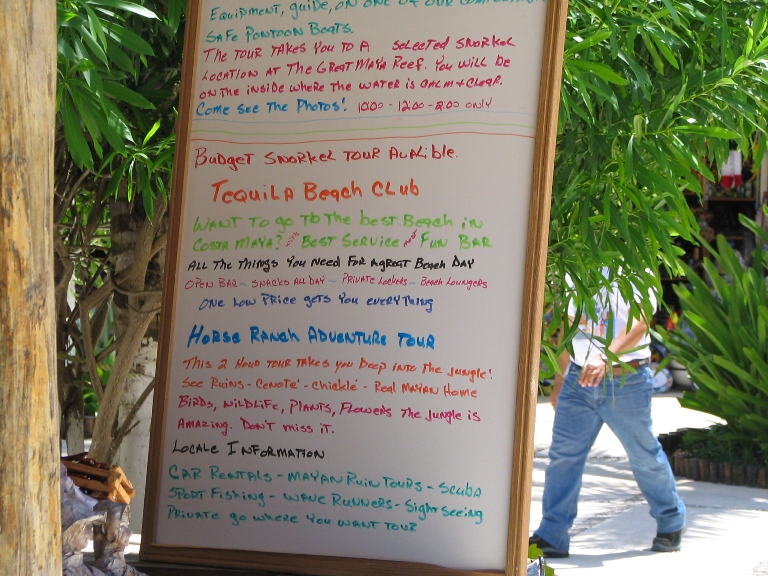 Equipment, guide, on one of our
Safe Pontoon Boats.
The tour takes you to a selected snorkel
location at the Great Maya Reef. You will be
on the inside where the water is calm + clear.
Come see the Photos! 10:00 - 12:00 - 2:00 only
Budget snorkel tour Avalible.
Tequila Beach Club
Want to go to the best Beach in
Costa Maya? Best Service Fun Bar
All the things you need for a great Beach Day
Open Bar - Snacks all day - Private Lockers - Beach Loungers
One low price gets you everything
Horse Ranch Adventure Tour
This 2 hour tour takes you deep into the jungle!
See Ruins - Cenote' - Chickle' - Real Mayan Home
Birds, wildlife, plants, flowers the jungle is
Amazing. Don't miss it.
Locale Information
Car Rentals - Mayan Ruin Tours - Scuba
Sport Fishing - Wave Runners - Sight seeing
Private go where you want tour